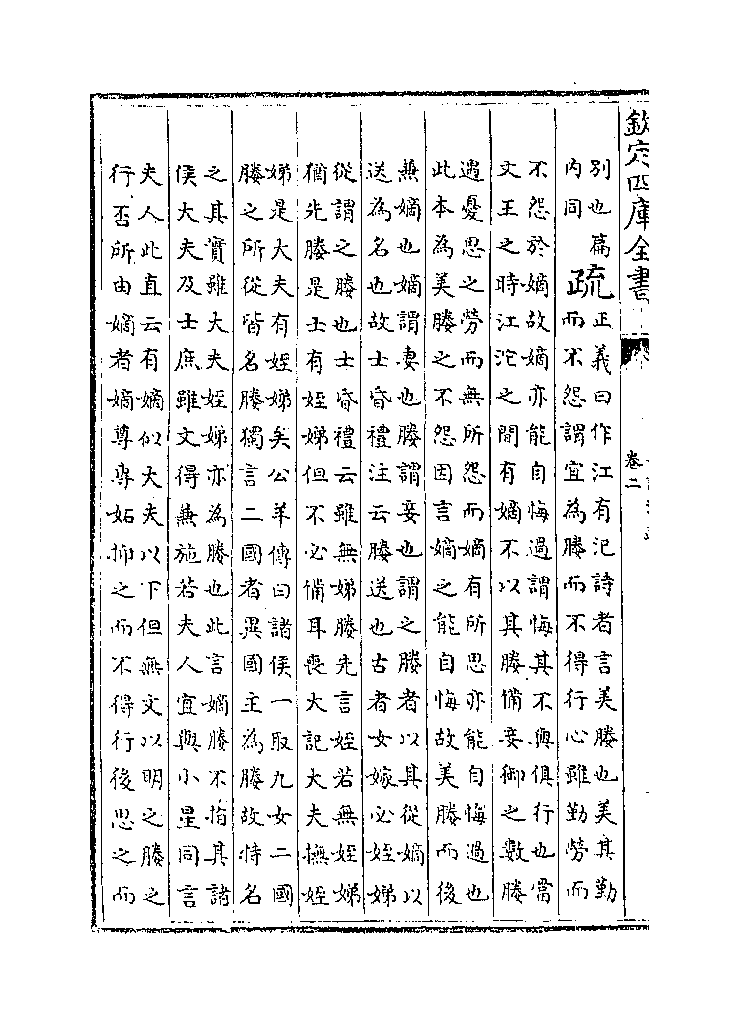 欽定四庫全書
卷二
別也篇
內同
疏
正義曰作江有汜詩者言美媵也美其勤
而不怨謂宜為媵而不得行心雖勤勞而
不怨於嫡故嫡亦能自悔過謂悔其不與俱行也當
文王之時江沱之間有嫡不以其媵備妾御之數媵
遇憂思之勞而無所怨而嫡有所思亦能自悔過也
此本為美媵之不怨因言嫡之能自悔故美媵而後
兼嫡也嫡謂妻也媵謂妾也謂之媵者以其從嫡以
送為名也故士昏禮注云媵送也古者女嫁必姪娣
從謂之媵也士昏禮云雖無娣媵先言姪若無姪娣
猶先媵是士有姪娣但不必備耳喪大記大夫撫姪
娣是大夫有姪娣矣公羊傳曰諸侯一取九女二國
媵之所從皆名媵獨言二國者異國主為媵故特名
之其實雖大夫姪娣亦為媵也此言嫡媵不指其諸
侯大夫及士庶雖文得兼施若夫人宜與小星同言
夫人此直云有嫡似大夫以下但無文以明之媵之
行否所由嫡者嫡尊專妬抑之而不得行後思之而